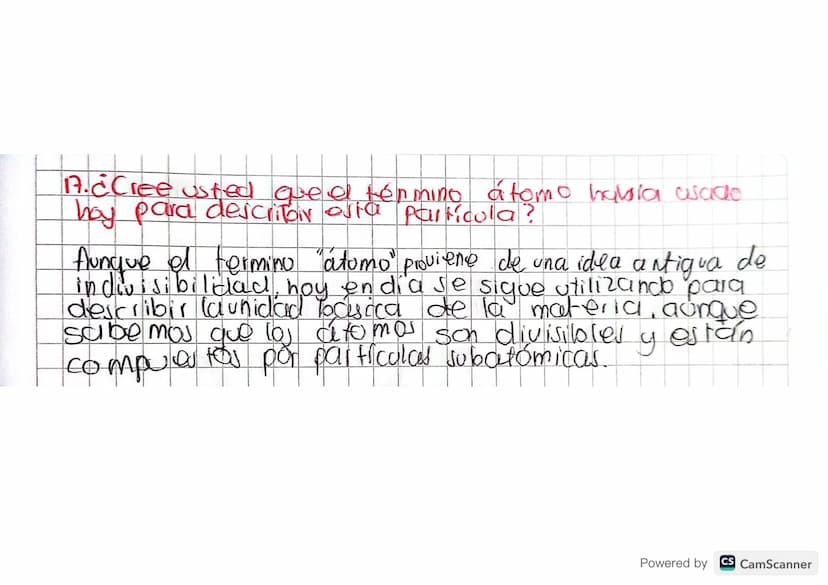 17. ¿Cree usted que el término átomo había usado
hoy para describir esta partícula?
Aunque el termino "átomo" proviene de una idea antigua de
indivisibilidad, hoy en día se sigue utilizando para
describir la unidad básica de la materia, aunque
sabemos que los átomos son divisibles y están
compuestos por partículas subatómicas.
Powered by CS CamScanner